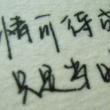 情可待成
只是当时